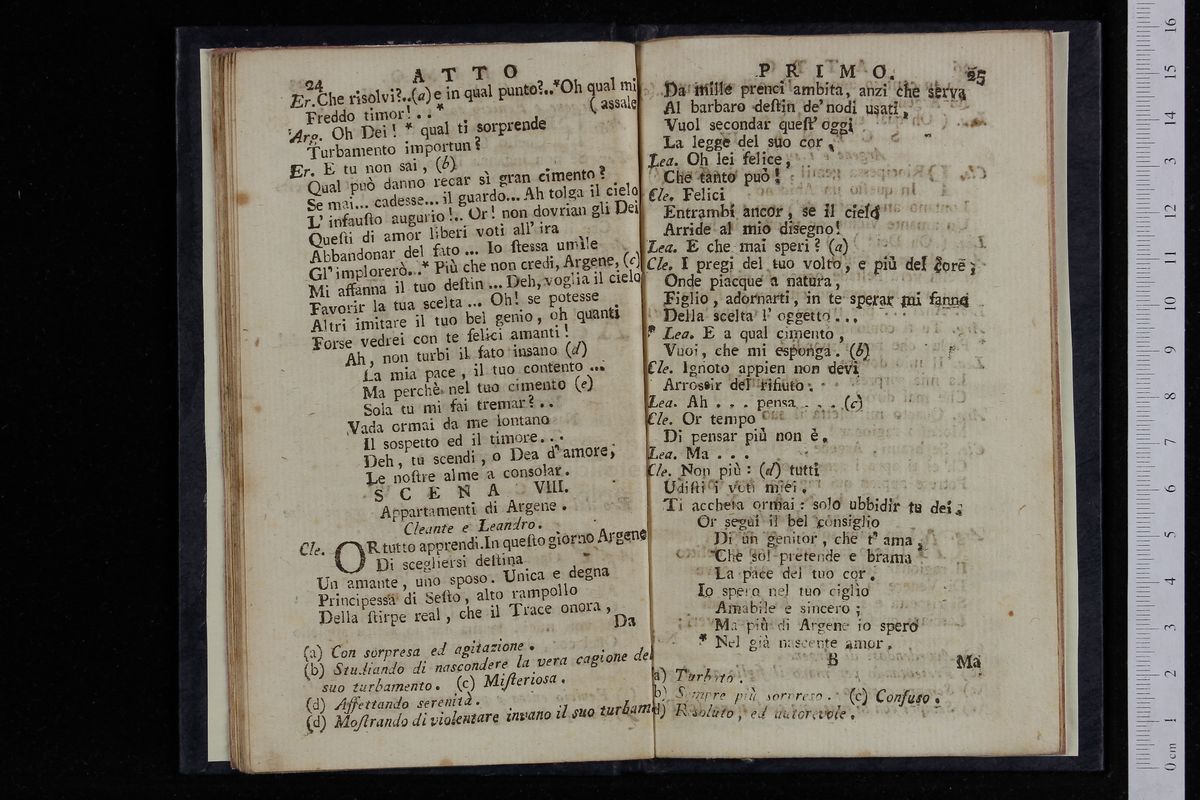 24 ATTO
Er. Che risolvi?..(a) e in qual punto?..*Oh qual mi
Freddo timor!.. * (assale
Arg. Oh Dei! * qual ti sorprende
Turbamento importun?
Er. E tu non sai, (b)
Qual può danno recar sì gran cimento?
Se mai... cadesse... il guardo... Ah tolga il cielo
L' infauſto augurio!.. Or! non dovrian gli Dei
Queſti di amor liberi voti all' ira
Abbandonar del fato... Io ſteſsa umile
Gl' implorerò...* Più che non credi, Argene, (c)
Mi affanna il tuo deſtin... Deh, voglia il cielo
Favorir la tua scelta... Oh! se potesse
Altri imitare il tuo bel genio, oh quanti
Forse vedrei con te felici amanti!
Ah, non turbi il fato insano (d)
La mia pace, il tuo contento...
Ma perchè nel tuo cimento (e)
Sola tu mi fai tremar?..
Vada ormai da me lontano
Il sospetto ed il timore...
Deh, tu scendi, o Dea d'amore,
Le noſtre alme a consolar.
SCENA VIII.
Appartamenti di Argene.
Cleante e Leandro.
Cle. OR tutto apprendi. In queſto giorno Argene
Di scegliersi deſtina
Un amante, uno sposo. Unica e degna
Principessa di Seſto, alto rampollo
Della ſtirpe real, che il Trace onora,
Da
(a) Con sorpresa ed agitazione.
(b) Studiando di nascondere la vera cagione del
suo turbamento. (c) Miſteriosa.
(d) Affettando serenità.
(d) Moſtrando di violentare invano il suo turbam.
PRIMO. 25
Da mille prenci ambita, anzi che serva
Al barbaro deſtin de' nodi usati,
Vuol secondar queſt' oggi
La legge del suo cor.
Lea. Oh lei felice,
Che tanto può!
Cle. Felici
Entrambi ancor, se il cielo
Arride al mio disegno!
Lea. E che mai speri? (a)
Cle. I pregi del tuo volto, e più del core,
Onde piacque a natura,
Figlio, adornarti, in te sperar mi fanno
Della scelta l' oggetto...
* Lea. E a qual cimento,
Vuoi, che mi esponga. (b)
Cle. Ignoto appien non devi
Arrossir del rifiuto.
Lea. Ah... pensa... (c)
Cle. Or tempo
Di pensar più non è.
Lea. Ma...
Cle. Non più: (d) tutti
Udiſti i voti miei.
Ti accheta ormai: solo ubbidir tu dei.
Or segui il bel consiglio
Di un genitor, che t' ama,
Che sol pretende e brama
La pace del tuo cor.
Io spero nel tuo ciglio
Amabile e sincero;
Ma più di Argene io spero
* Nel già nascente amor.
B Ma
(a) Turbato.
(b) Sempre più sorpreso. (c) Confuso.
(d) Risoluto, ed autorevole.
0 cm 1 2 3 4 5 6 7 8 9 10 11 12 13 14 15 16